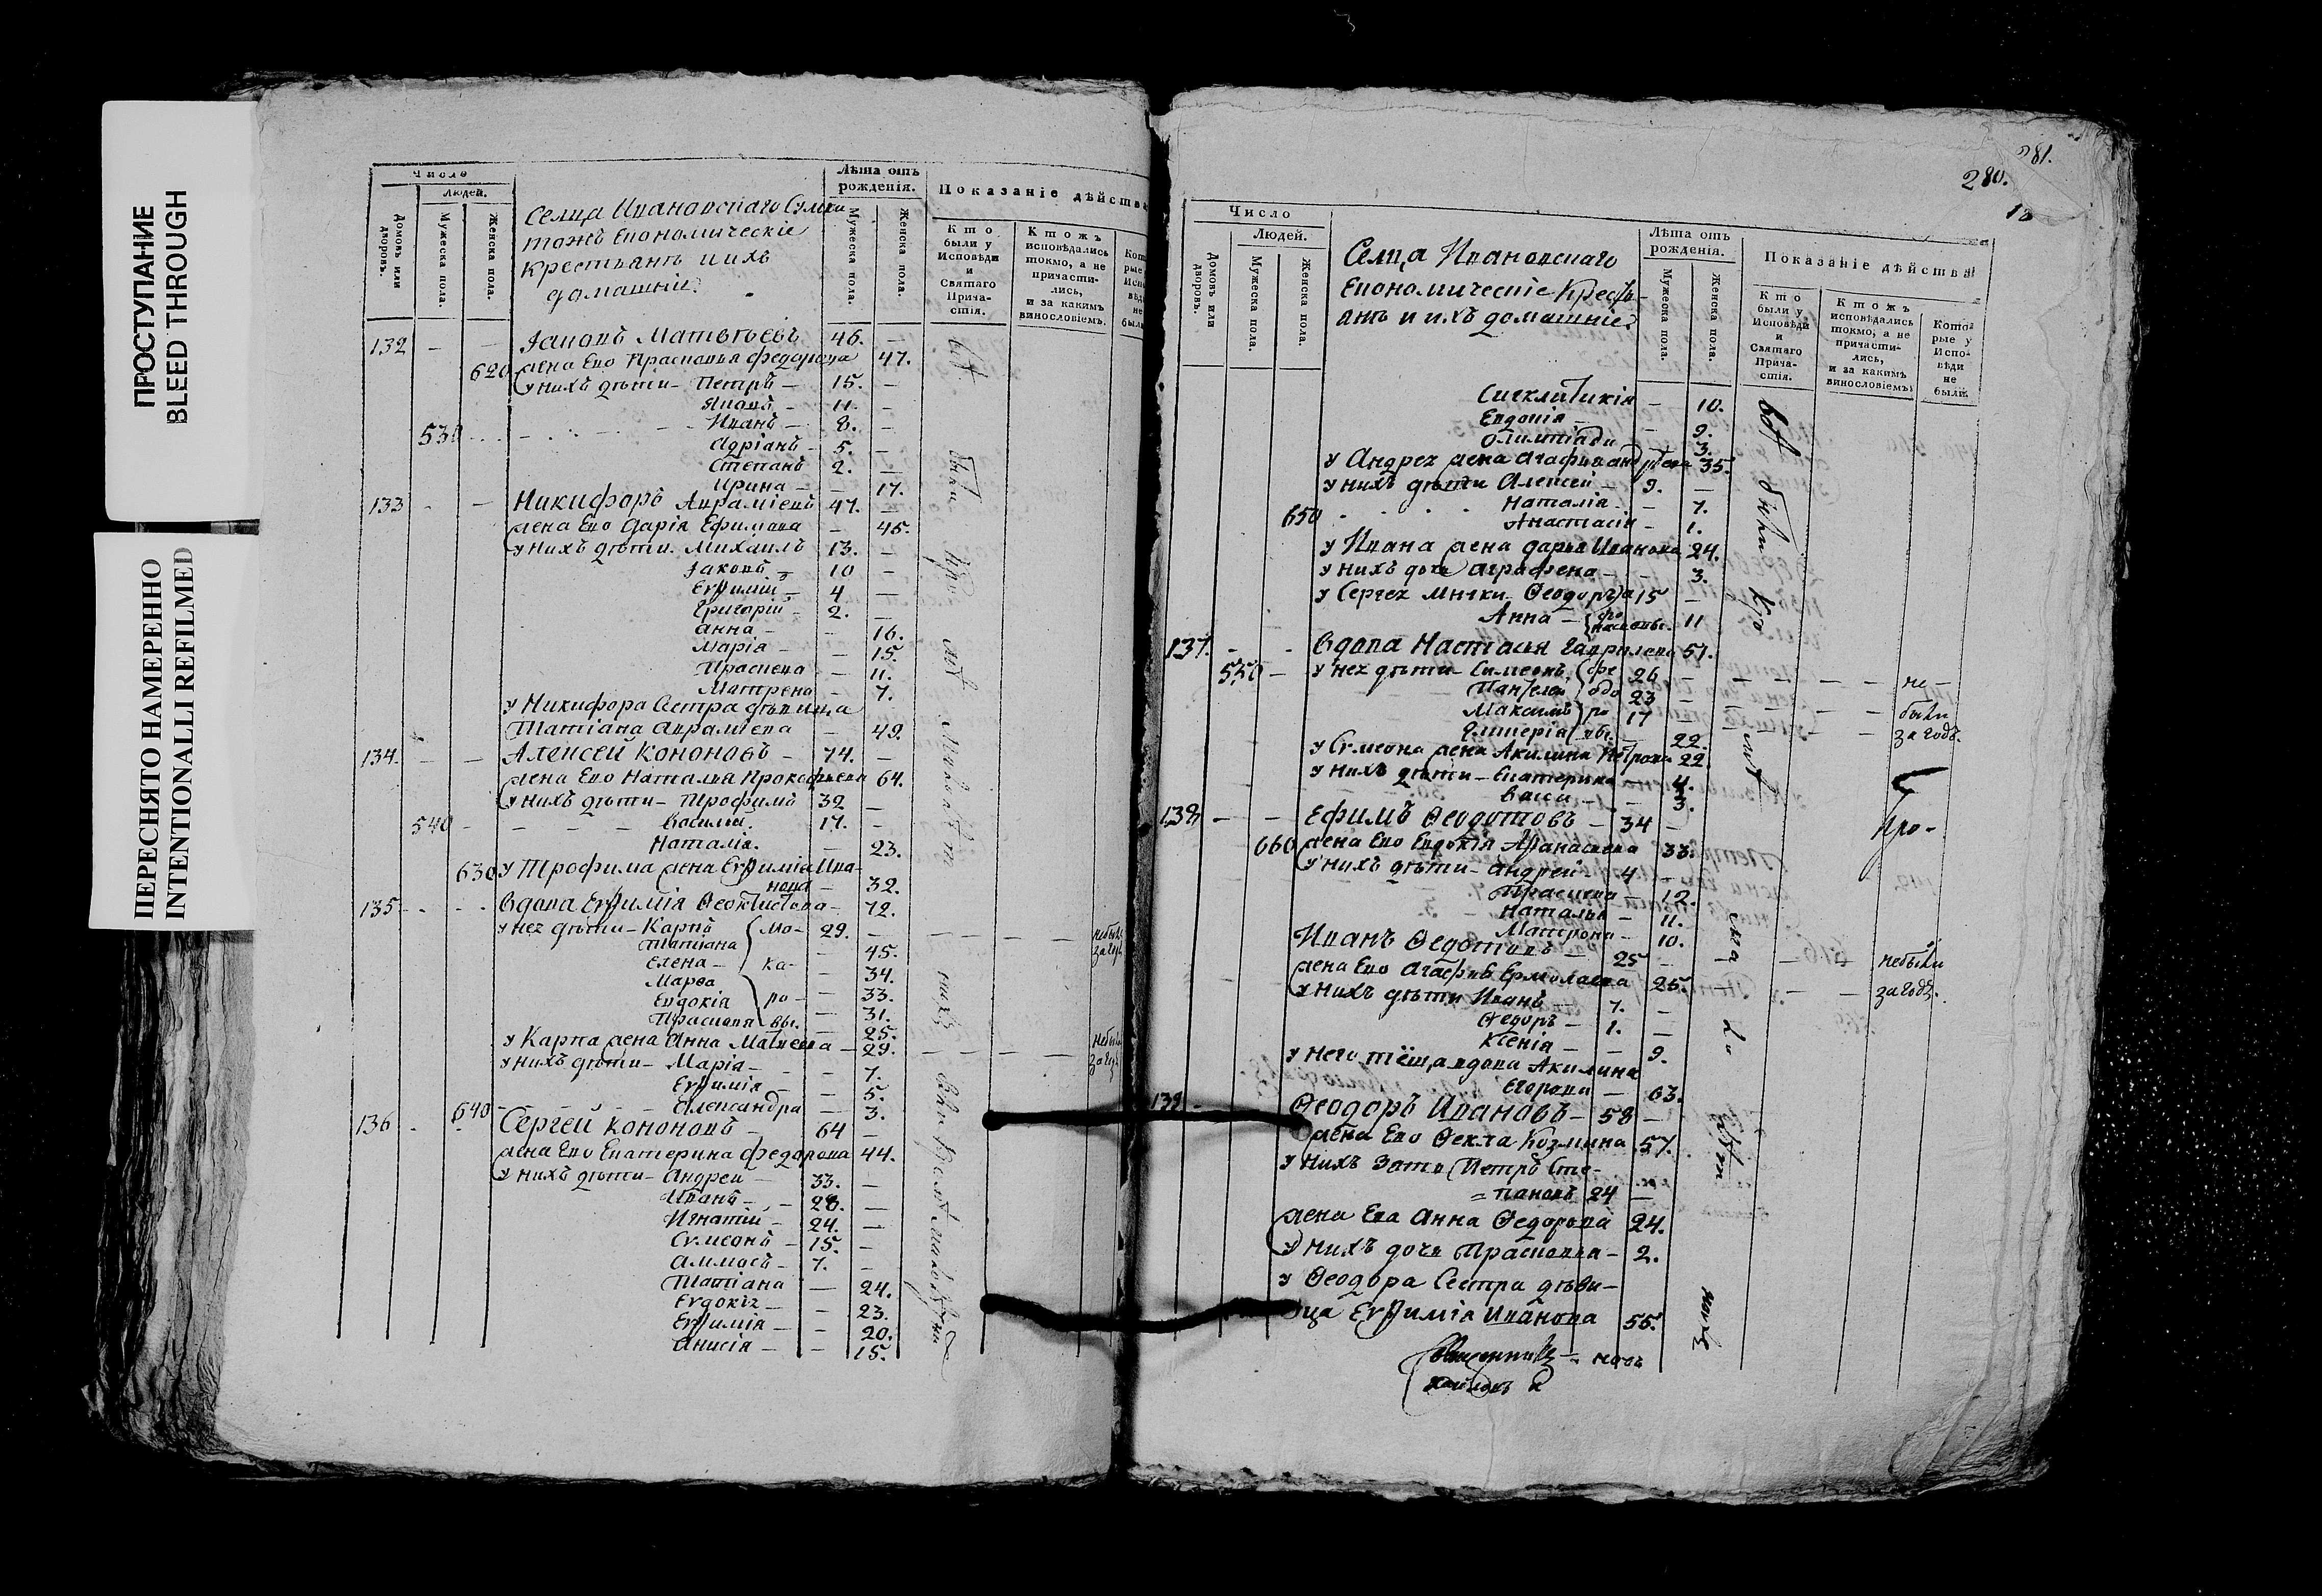 ПРОСТУПАНИЕ
BLEED THROUGH
ПЕРЕСНЯТО НАМЕРЕННО
INTENTIONALLI REFILMED
Число
Людей.
Домовъ или дворовъ.
Мужеска пола.
Женска пола.
Селца Ивановскаго
тожъ Економическіе
крестьянъ и ихъ
домашніи.
Лѣта отъ
рожденія.
Мужеска пола.
Женска пола.
Показаніе дѣйства
Кто были у Исповѣди и Святаго Причастія.
Ктожъ исповѣдались токмо, а не причастились, и за какимъ винословіемъ.
132 — — Іаковъ Матвѣевъ 46. —
620 жена Ево Прасковья Федорова 47.
у нихъ дѣти – Петръ – 15. –
Яковъ – 11. –
530 Иванъ – 8. –
Адріанъ – 5. –
Степанъ 2. –
Ирина – – 17.
133 - — Никифоръ Авраміевъ 47. —
жена Ево Дарія Ефимова – 45.
у нихъ дѣти. Михаилъ 13. –
Іаковъ – 10 –
Евѳимій – 4 —
Григорій – 2. –
Анна – – 16.
Марія – – 15.
Праскева – 11.
Матрена – 7.
у Никифора Сестра дѣвица
Татіана Авраміева – 49.
134. — — Алексей Кононовъ – 74. –
жена Ево Наталья Прокофьева 64.
у нихъ дѣти – Трофимъ 32 –
540 Василий. 17. –
Наталія. – 23.
630 у Трофима жена Евѳимія Ива-
нова – 32.
135 вдова Евѳимія Ѳеоктистова – 72.
у нее дѣти – Карпъ Мо- 29. —
Татіана – 45.
Елена – ка- – 34.
Марѳа – 33.
Евдокія ро- — 31.
Прасковья вы. – 25.
у Карпа жена Анна Матѳеева – 29.
у нихъ дѣти – Марія – – 7.
Евѳимія – – 5.
640 Александра — 3.
136 Сергей Кононовъ – 64 –
жена Ево Екатерина Федорова 44.
у нихъ дѣти – Андреи – 33. –
Иванъ – 28. –
Игнатій – 24. –
Сѵмеонъ – 15. –
Аммосъ – 7. –
Татіана — 24.
Евдокія – – 23.
Евѳимія – – 20.
Анисія – – 15.
281.
280.
Число
Людей.
Домовъ или дворовъ.
Мужеска пола.
Женска пола.
Селца Ивановскаго
Економическіе Кресть-
янъ и ихъ домашніе.
Лѣта отъ
рожденія.
Мужеска пола.
Женска пола.
Показаніе дѣйства
Кто были у Исповѣди и Святаго Причастія.
Ктожъ исповѣдались токмо, а не причастились, и за какимъ винословіемъ.
Которые у Исповѣди не были.
Сигклитикія – 10.
Евдокія – – 9.
Олимпіада 3.
у Андрея жена Агафья 35.
у нихъ дѣти Алексей – 9. –
Наталія – – 7.
650 Анастасія – 1.
у Ивана жена Дарья Иванова 24.
у нихъ дочь Аграфена – – 3.
у Сергея Ѳеодоръ 15 –
Анна – 11
137. вдова Настасья Гаврилова 57.
550 – у нее дѣти – Симеонъ фе 26 – не –
Пантелей одо 23 – были
Максимъ ро 17 – за годъ.
вы. 22.
у Сѵмеона жена Акилина Петрова 22.
у нихъ дѣти – Екатерина – 4.
– 3.
138 — — Ефимъ Ѳеодотовъ – 34 –
660 жена Ево Евдокія Афанасьева 33.
у нихъ дѣти – Андрей – 4 –
Праскева – 12.
Наталья – 11.
Матрона – 10.
Иванъ Ѳедотовъ – 25 – небыли
жена Ево Агафья Ермолаева 25. – за годъ.
у нихъ дѣти Иванъ – 7. –
Ѳедоръ – 1. –
Ксенія – – 9.
у него тёща, вдова Акилина
Егорова – 63.
139 - Ѳеодоръ Ивановъ – 58 –
жена Ево Ѳекла Козмина 57.
у нихъ зять Петръ Сте-
= пановъ 24 —
жена Ева Анна Ѳедорова 24.
у нихъ дочь Прасковья – 2.
у Ѳеодора Сестра дѣви-
ца Евѳимія Иванова 55.